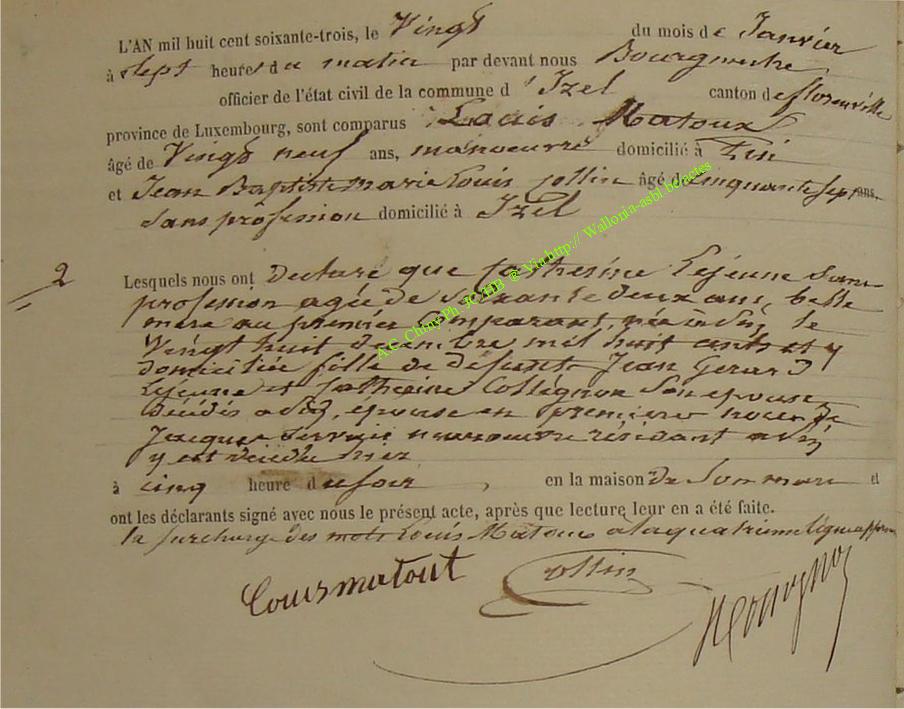 L'AN mil huit cent soixante-trois, le Vingt du mois de Janvier
à Sept heures du matin par devant nous Bourgmestre
officier de l'état civil de la commune d'Izel canton de florenville
province de Luxembourg, sont comparus Louis Matoux
âgé de Vingt neuf ans, manoeuvre domicilié à
et Jean Baptiste Marie Louis Collin âgé de cinquante sept ans
Sans profession domicilié à Izel
2
Lesquels nous ont Declaré que Catherine Lejeune Sans
profession agée de Soixante deux ans, belle
mere au premier Comparant, née à le
Vingt huit mil huit cents et y
domiciliée fille de defunts Jean Gerard
Lejeune et Catherine Collignon Son epouse,
décédés à epouse en premiere noces de
Jacques Servais manoeuvre résidant à
y est décédée hier
à cinq heure du soir, en la maison De Son mari et
ont les déclarants signé avec nous le présent acte, après que lecture leur en a été faite.
la surcharge des mots Louis Matoux a la quatrieme ligne approuvée
Louis matout Collin
A.C. Chiny Ph. JC HB @ Via http:// Wallonia-asbl.be/actes